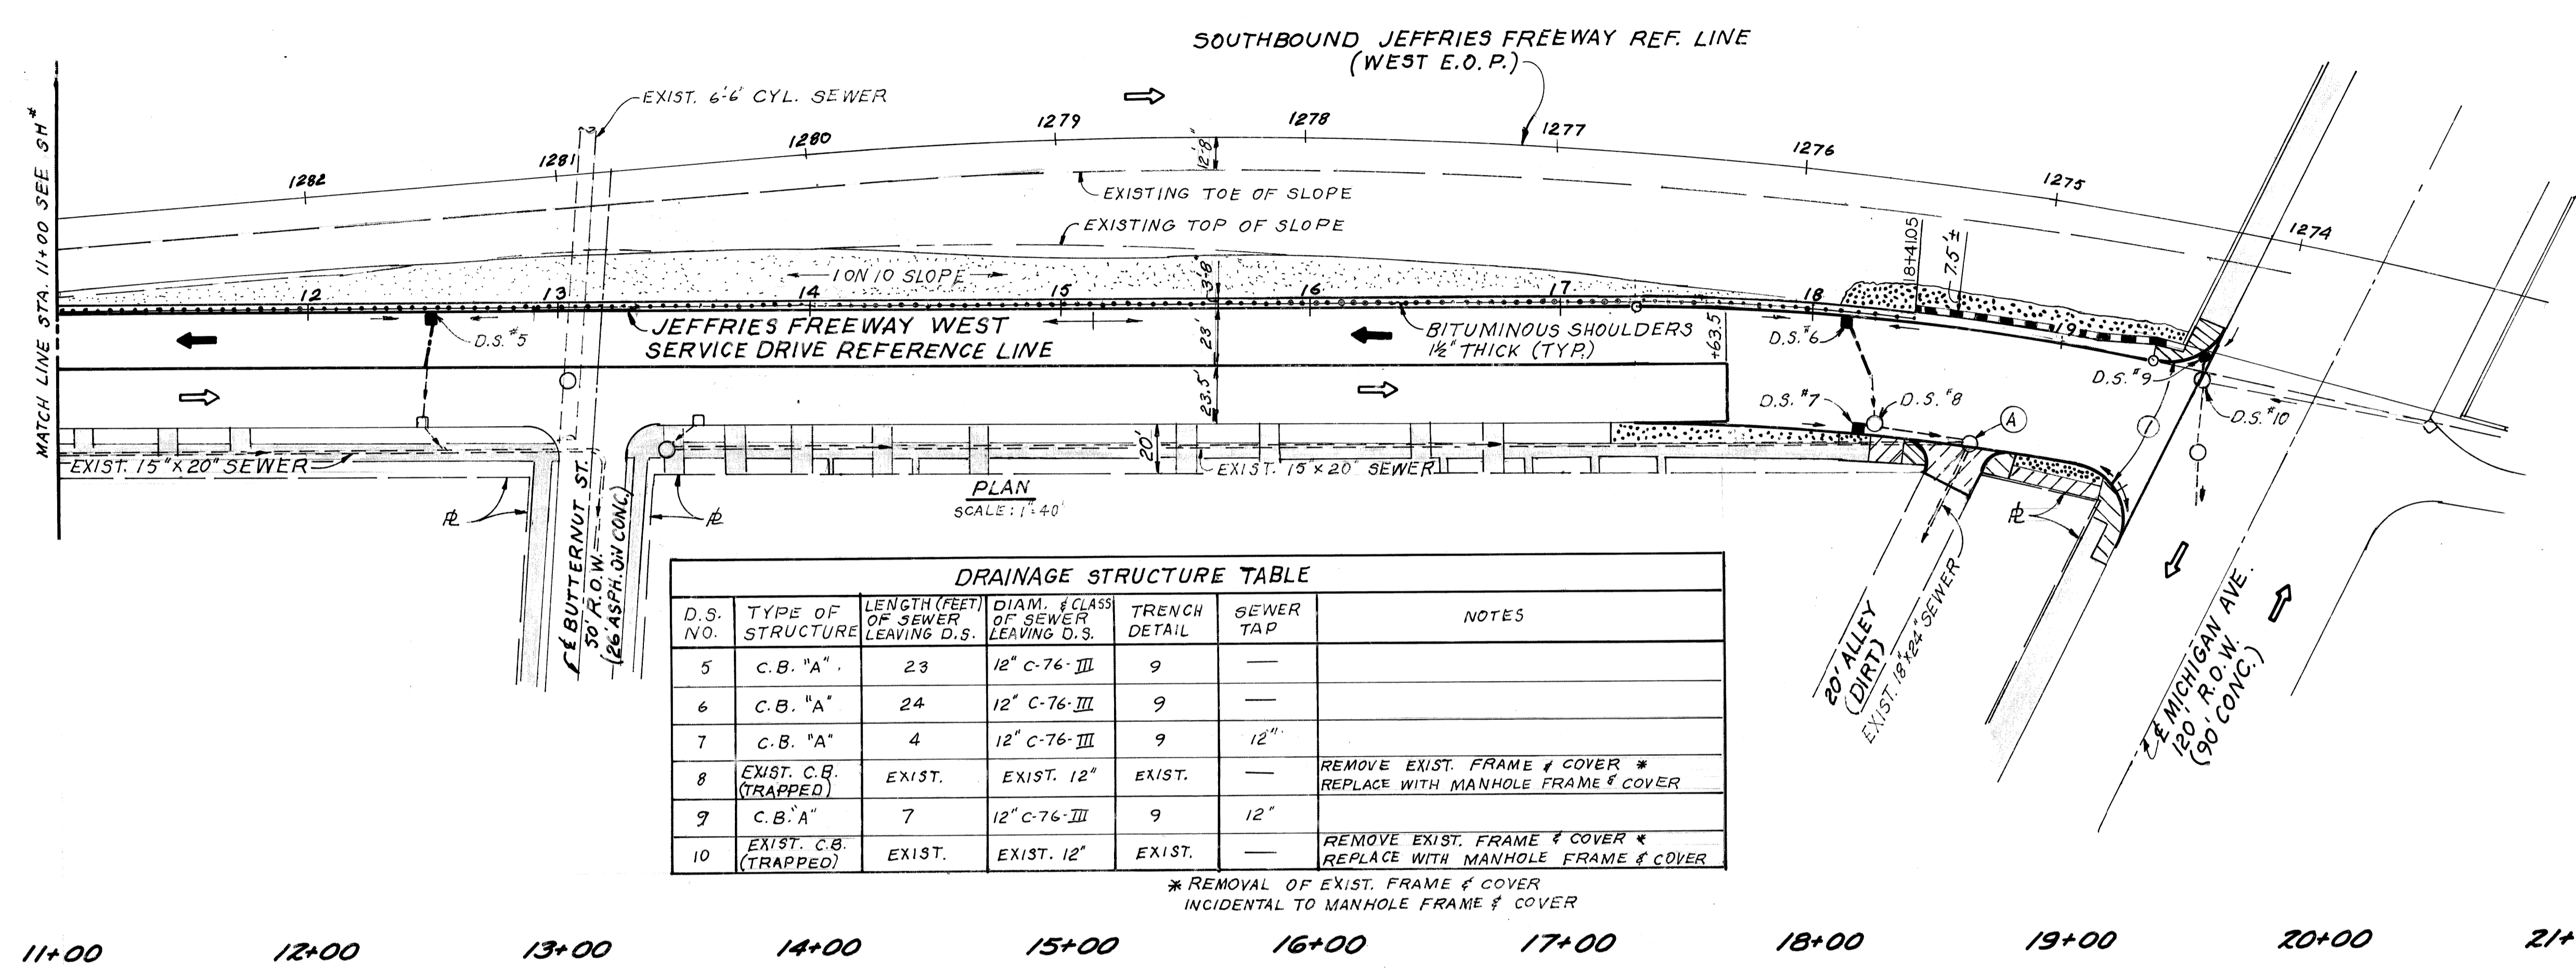 SOUTHBOUND JEFFRIES FREEWAY REF. LINE
(WEST E.O.P.)
EXIST. 6'-6" CYL. SEWER
1282
1281
1280
1279
1278
1277
1276
1275
1274
12'-8"
EXISTING TOE OF SLOPE
EXISTING TOP OF SLOPE
1 ON 10 SLOPE
3'-8"
18+41.05
7.5'±
MATCH LINE STA. 11+00 SEE SH#
12
13
14
15
16
17
18
19
D.S.#5
JEFFRIES FREEWAY WEST
SERVICE DRIVE REFERENCE LINE
23'
23.5'
BITUMINOUS SHOULDERS
1½" THICK (TYP.)
+63.5
D.S.#6
D.S.#7
D.S.#8
D.S.#9
D.S.#10
A
1
EXIST. 15"X20" SEWER
20'
EXIST. 15"X20" SEWER
PLAN
SCALE: 1"=40'
℄ BUTTERNUT ST.
50' R.O.W.
(26' ASPH. ON CONC.)
20' ALLEY
(DIRT)
EXIST. 18"X24" SEWER
℄ MICHIGAN AVE.
120' R.O.W.
(90' CONC.)
DRAINAGE STRUCTURE TABLE
D.S. NO. TYPE OF STRUCTURE LENGTH (FEET) OF SEWER LEAVING D.S. DIAM. & CLASS OF SEWER LEAVING D.S. TRENCH DETAIL SEWER TAP NOTES
5 C.B. "A" 23 12" C-76-III 9 —
6 C.B. "A" 24 12" C-76-III 9 —
7 C.B. "A" 4 12" C-76-III 9 12"
8 EXIST. C.B. (TRAPPED) EXIST. EXIST. 12" EXIST. — REMOVE EXIST. FRAME & COVER *
REPLACE WITH MANHOLE FRAME & COVER
9 C.B. "A" 7 12" C-76-III 9 12"
10 EXIST. C.B. (TRAPPED) EXIST. EXIST. 12" EXIST. — REMOVE EXIST. FRAME & COVER *
REPLACE WITH MANHOLE FRAME & COVER
* REMOVAL OF EXIST. FRAME & COVER
INCIDENTAL TO MANHOLE FRAME & COVER
11+00 12+00 13+00 14+00 15+00 16+00 17+00 18+00 19+00 20+00 21+